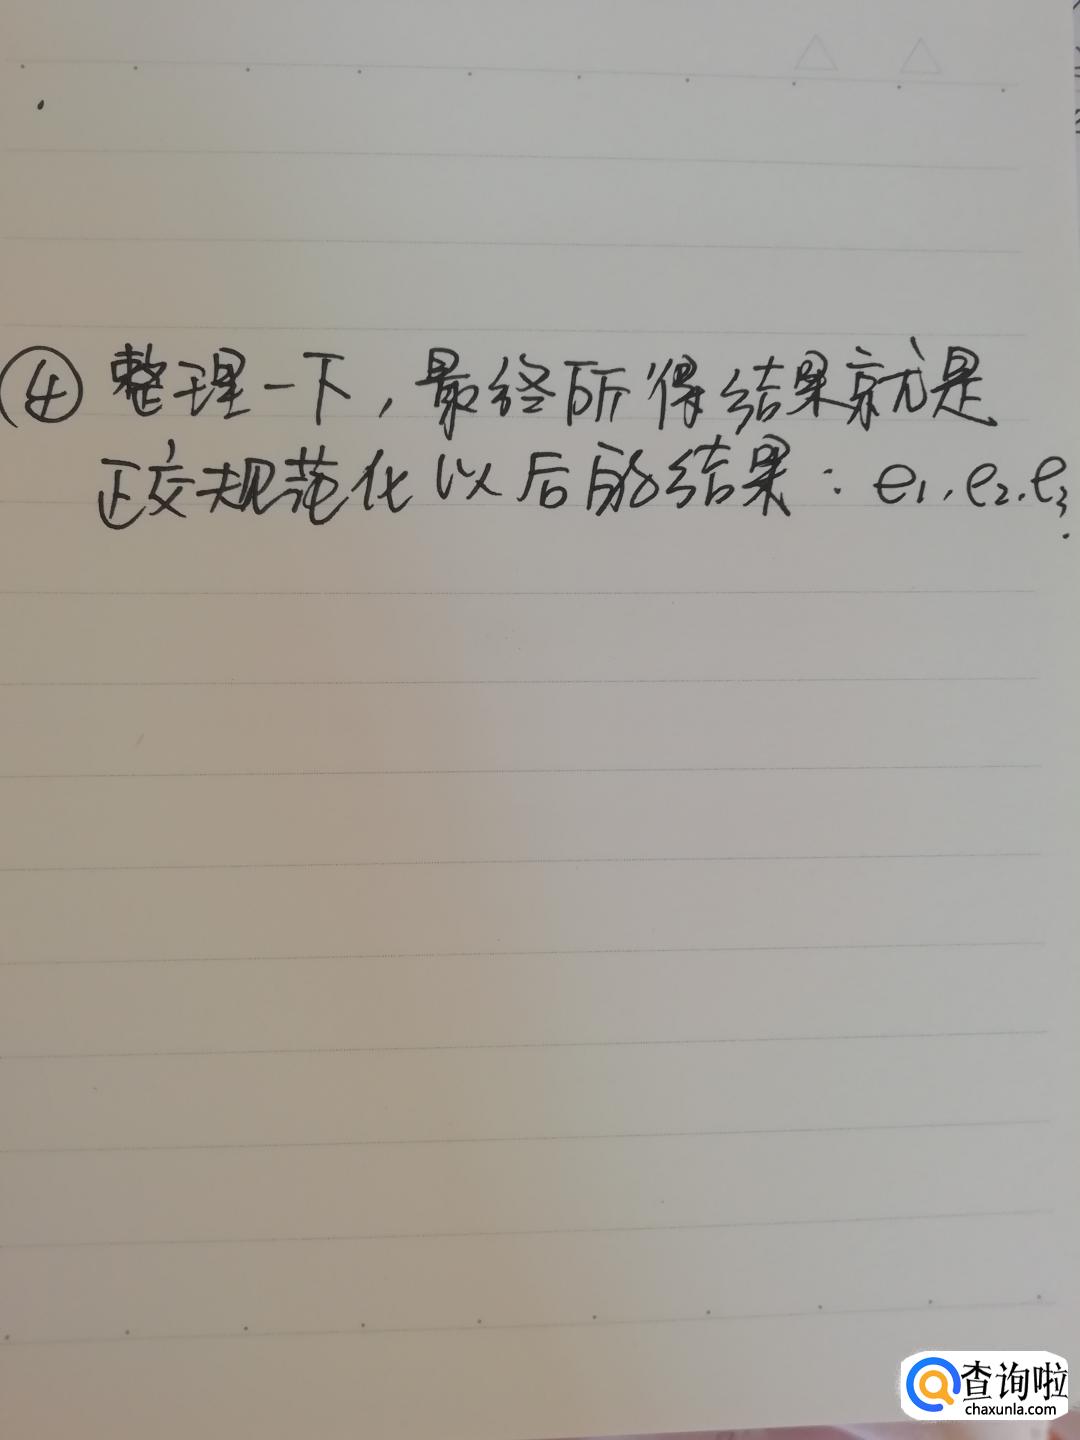 ④ 整理一下，最终所得结果就是
正交规范化以后的结果：e₁，e₂，e₃．
查询啦
chaxunla.com